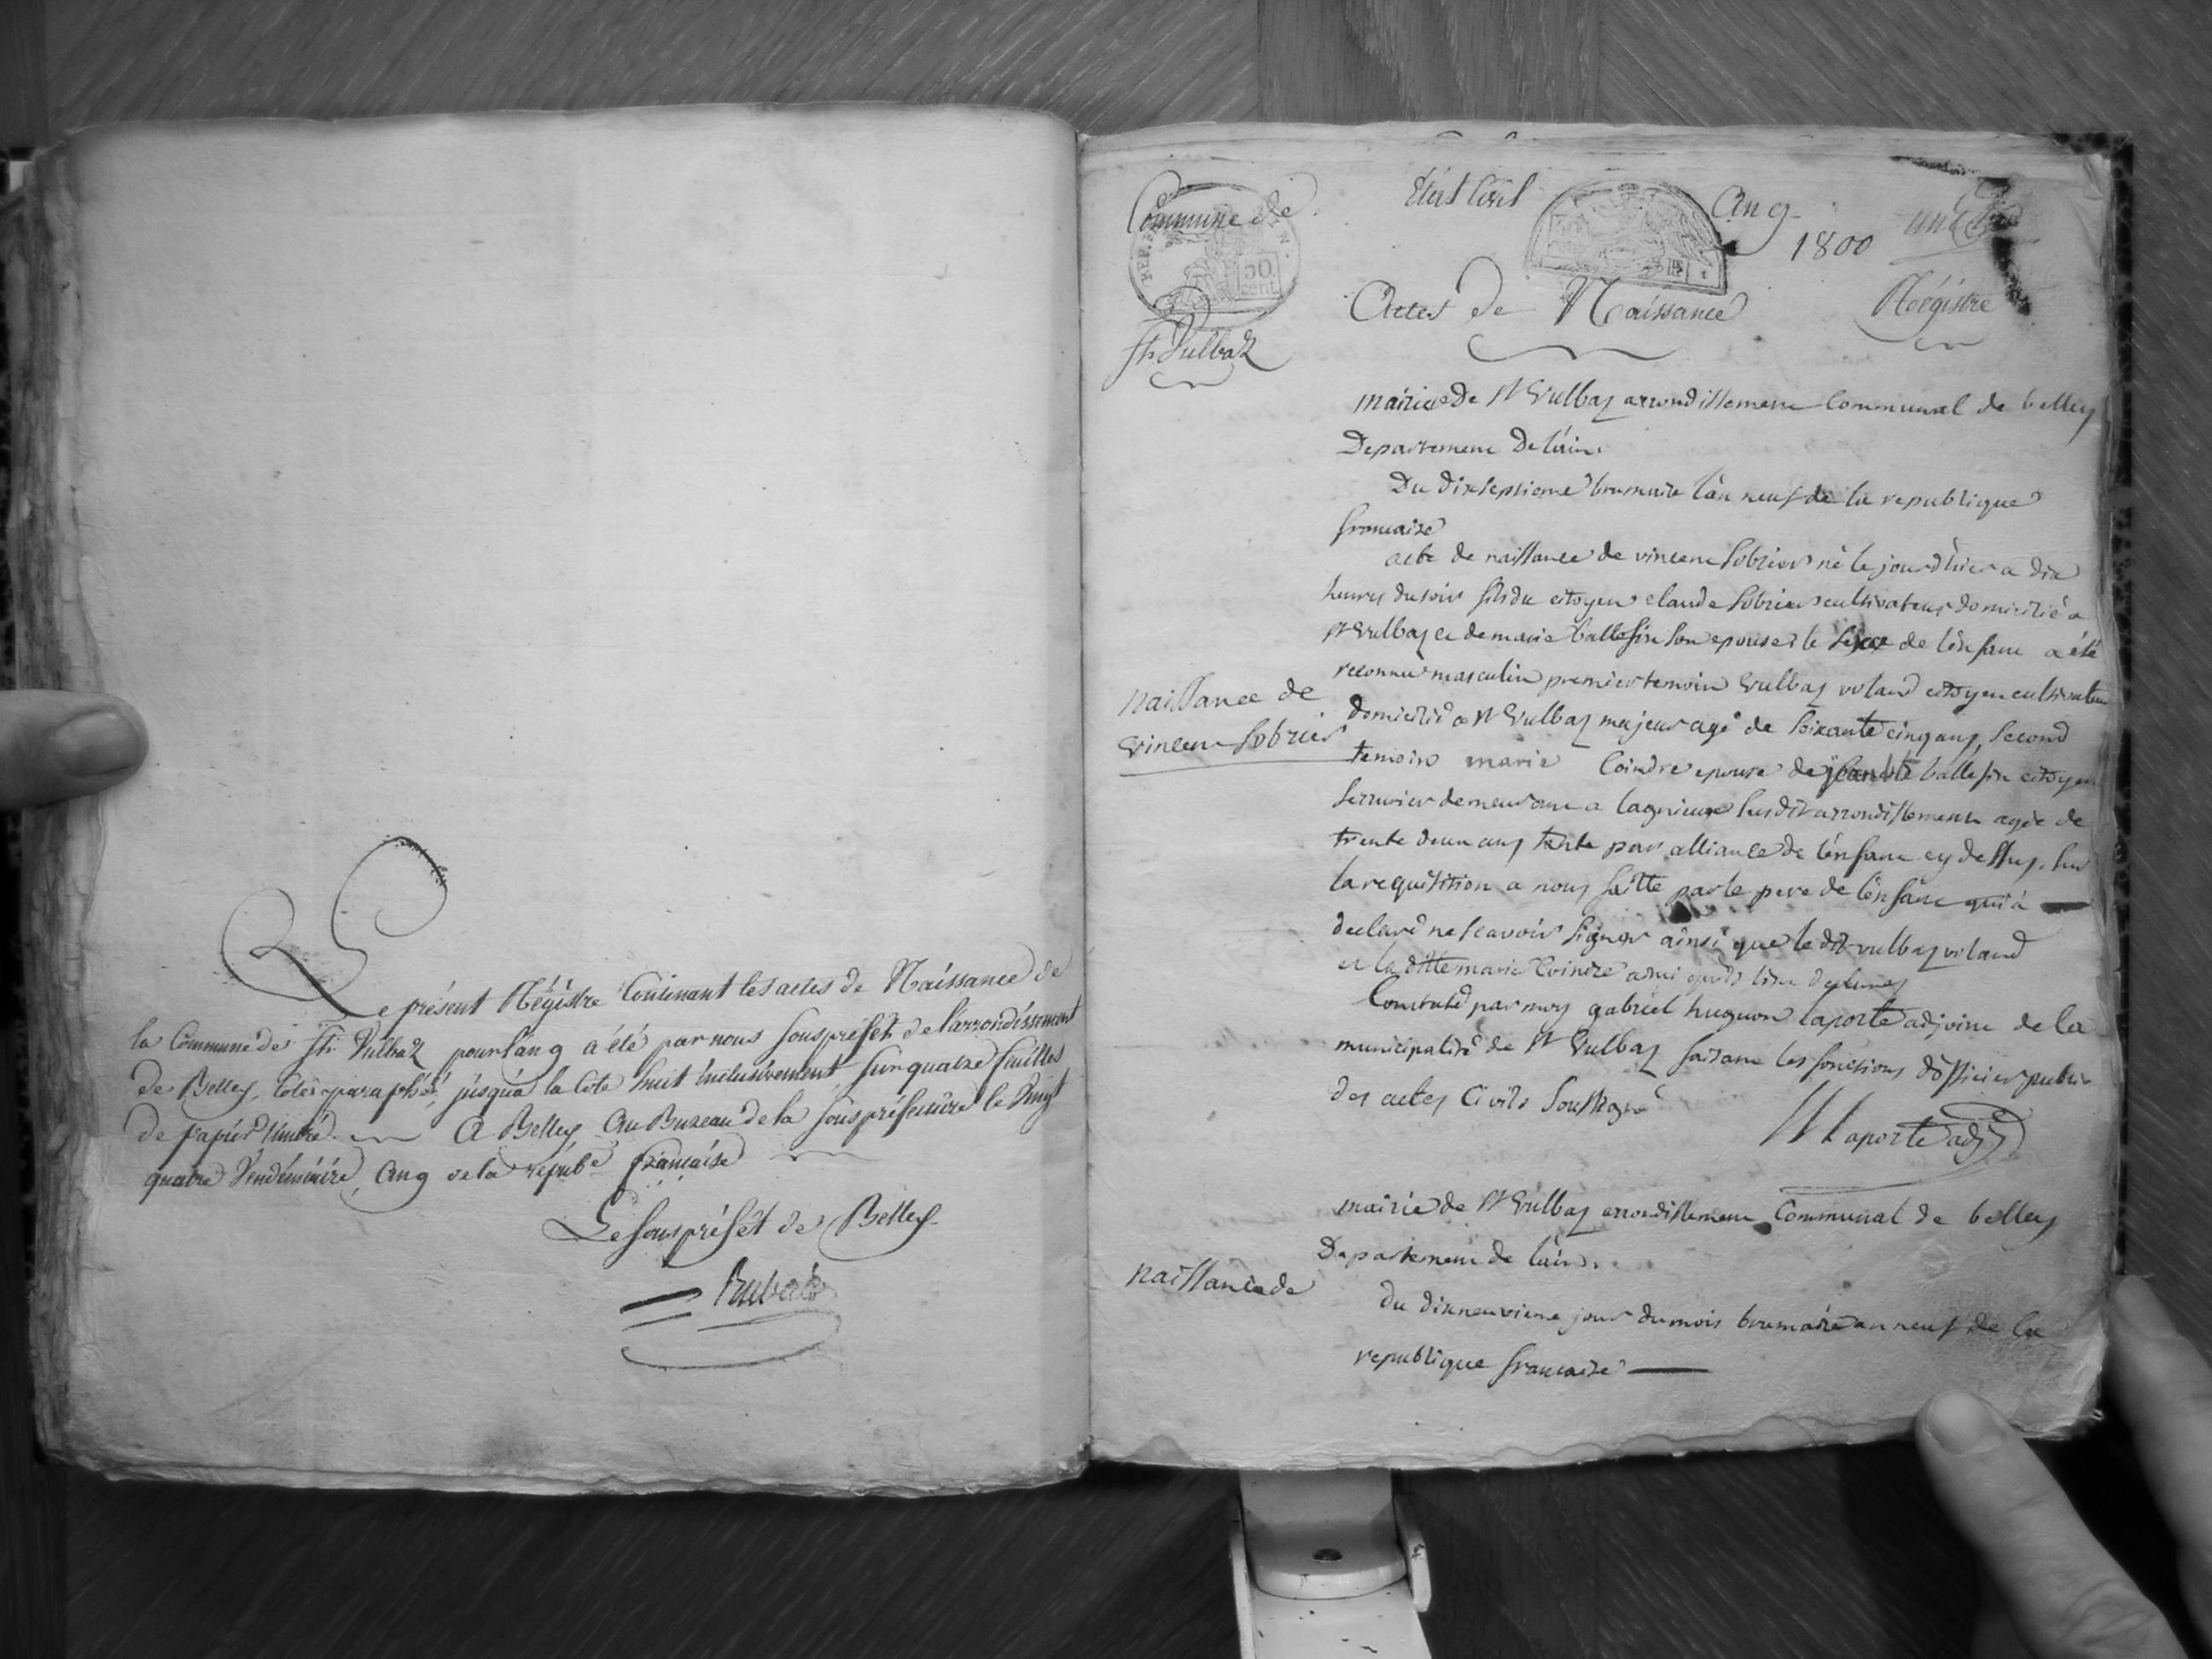 Le présent Régistre Contenant les actes de Naissance de
la Commune de St. Vulbaz pour l'an 9 a été par nous Sous préfet de l'arrondissement
de Belley, coté & paraphé, jusqu'a la cote huit inclusivement sur quatre feuilles
de papier timbré. A Belley Au Bureau de la sous préfecture le Vingt
quatre Vendémiaire, an 9 de la répub.e française
Le sous préfet de Belley
Commune de
St. Vulbaz
REP.
50
cent
Etat Civil
An 9
1800
Actes de Naissance
Régistre
mairie de St Vulbaz arrondissement Communal de belley
Departement de l'ain.
Du dixseptieme brumaire l'an neuf de la republique
francaise
naissance de
vincent Sobrier
acte de naissance de vincent Sobrier né le jour d'hier a dix
heures du soir fils du citoyen claude Sobrier cultivateur domicilié a
St Vulbaz et de marie ballefin son epouse le sexe de l'enfant a été
reconnu masculin premier temoin Vulbaz voland citoyen cultivateur
domicilié a St Vulbaz majeur agé de soixante cinq ans, second
temoin marie Coindre epouse de ballefin citoyen
serrurier demeurant a lagnieux susdit arrondissement agée de
trente deux ans tante par alliance de l'enfant cy dessus. sur
la requisition a nous faitte par le pere de l'enfant qui a
declaré ne scavoir signer ainsi que le dit vulbaz voland
et la ditte marie Coindre
Constaté par moy gabriel hugon laporte adjoint de la
municipalité de St Vulbaz faisant les fonctions d'officier public
des actes Civils Soussigné
Laporte adj
mairie de St Vulbaz arrondissement Communal de belley
Departement de l'ain.
naissance de
du dixneuvieme jour du mois brumaire an neuf de la
republique francaise